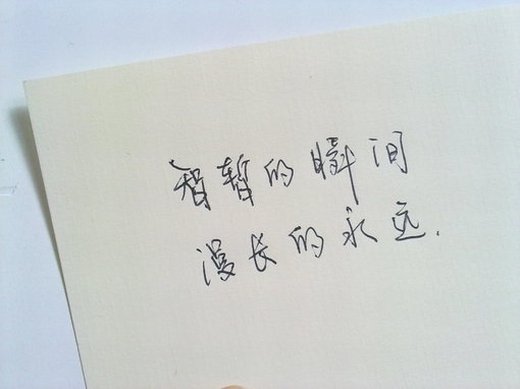 暂暂的瞬间
漫长的永远.